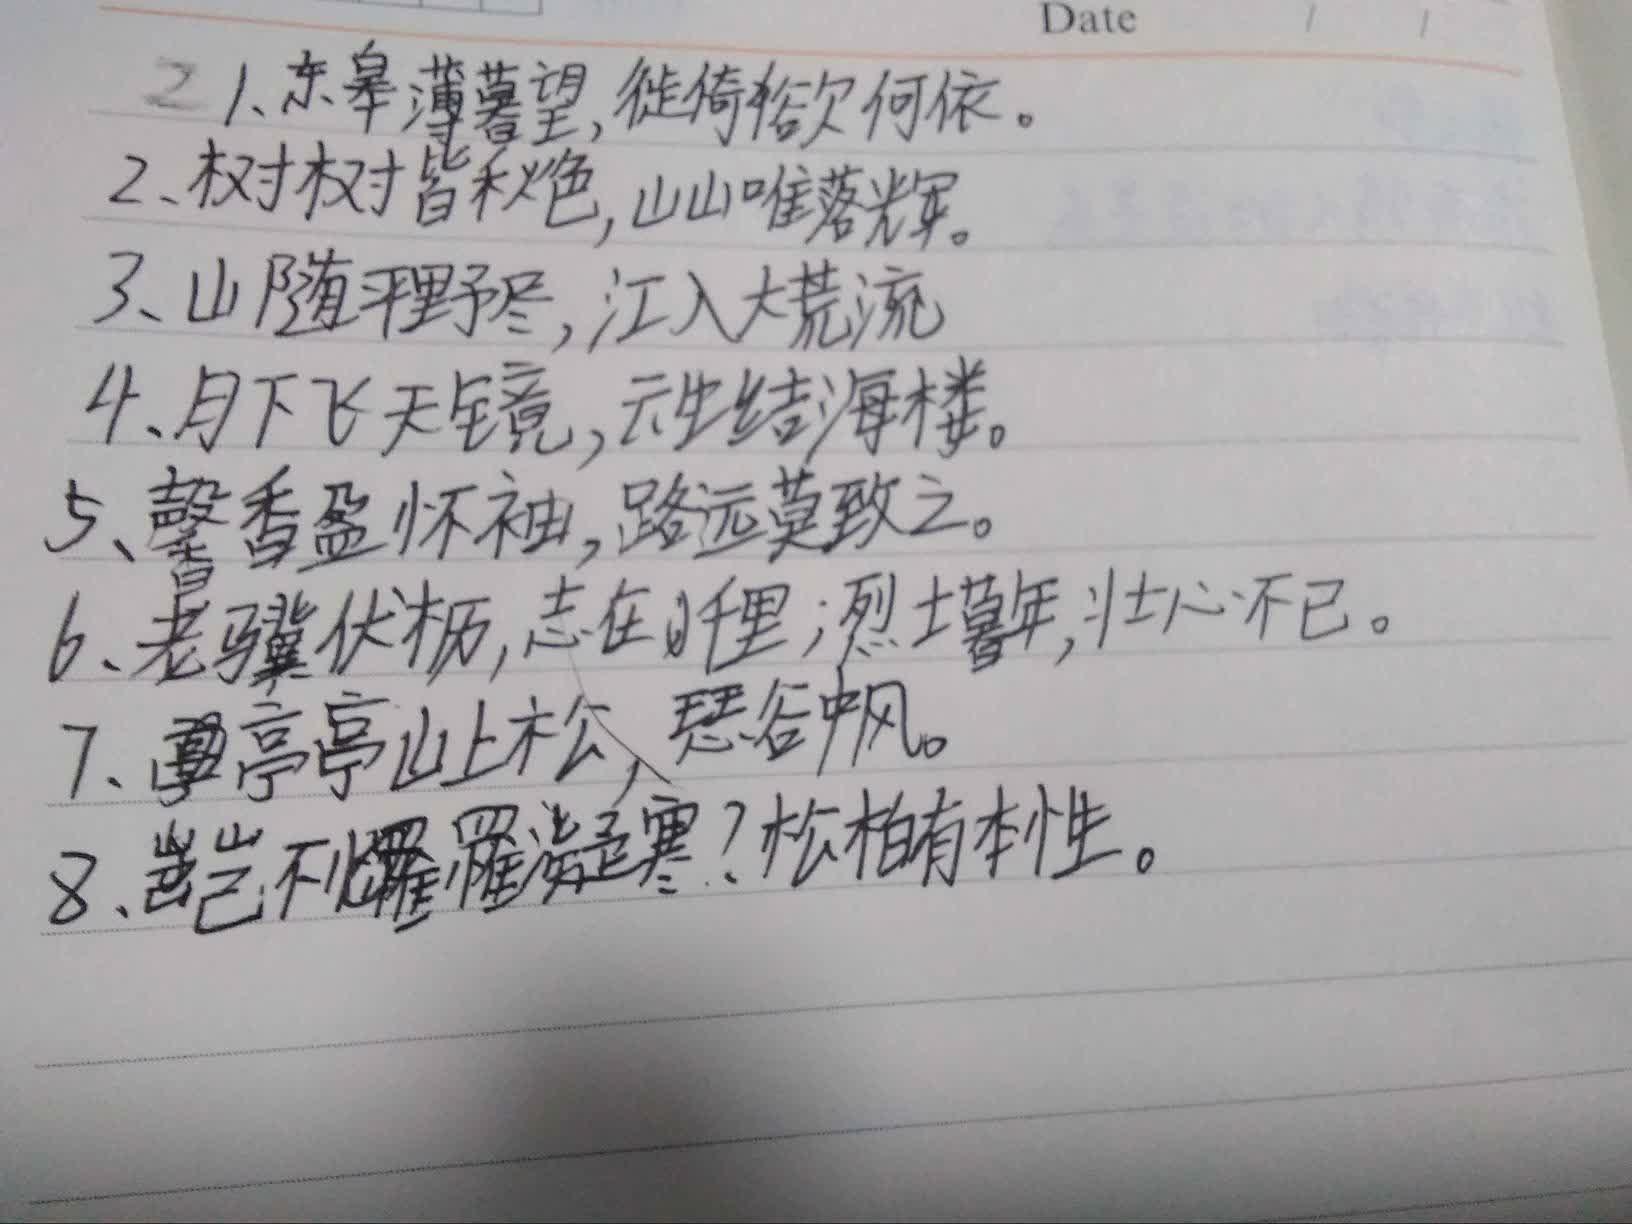 Date / /
2 1、东皋薄暮望,徙倚欲何依。
2、树树皆秋色,山山唯落辉。
3、山随平野尽,江入大荒流
4、月下飞天镜,云生结海楼。
5、馨香盈怀袖,路远莫致之。
6、老骥伏枥,志在千里;烈士暮年,壮心不已。
7、亭亭山上松,瑟谷中风。
8、岂不罹凝寒?松柏有本性。